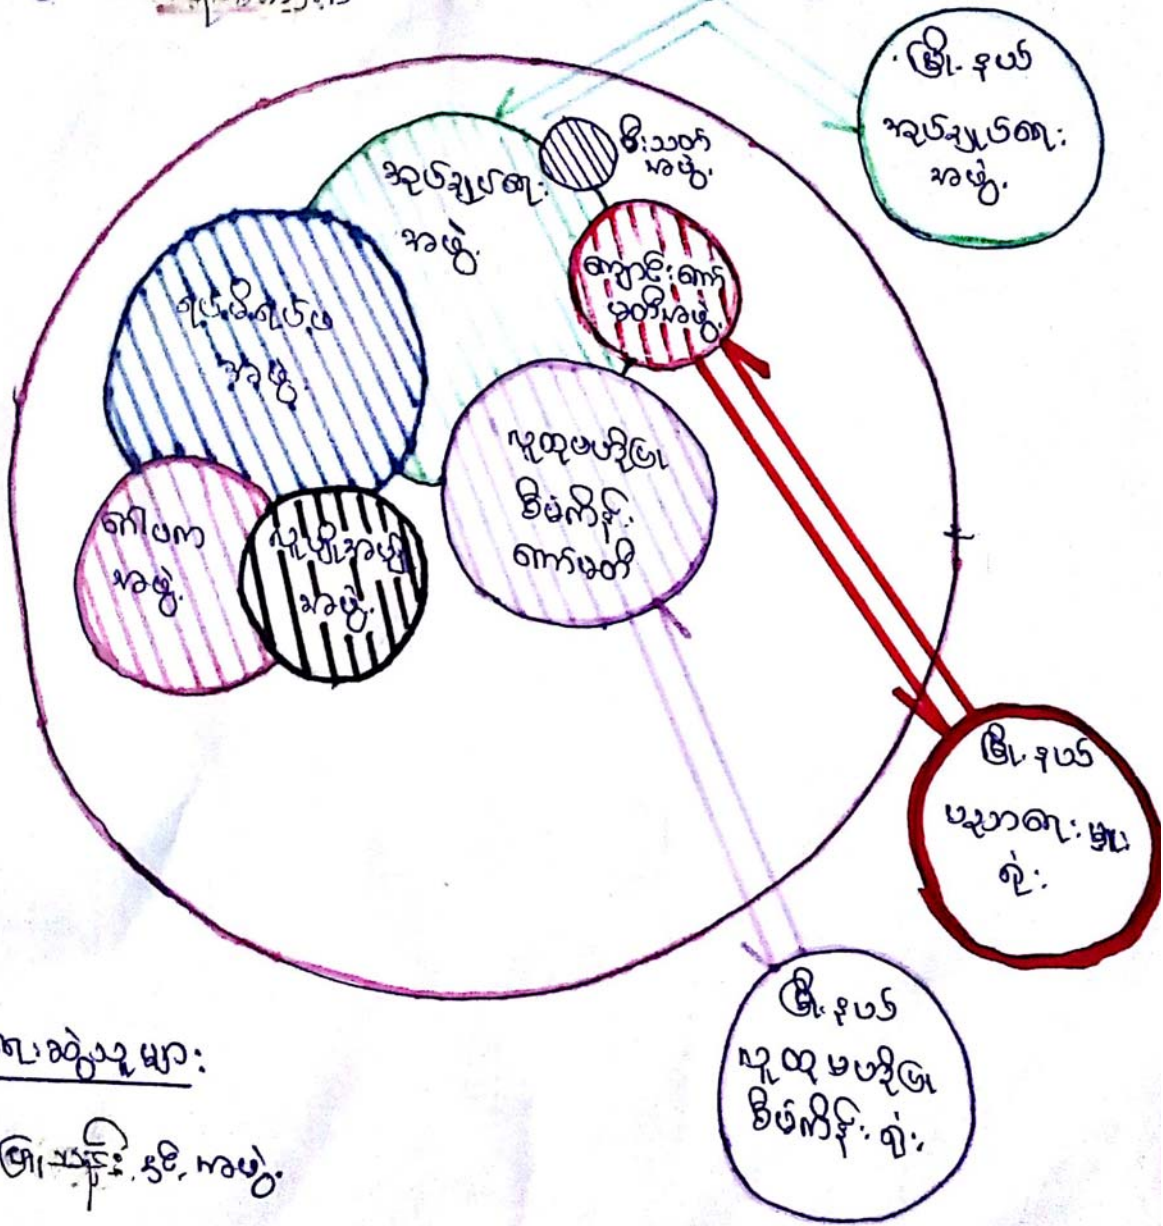 မြို့နယ်
အုပ်ချုပ်ရေး
အဖွဲ့
မီးသတ်
အဖွဲ့
အုပ်ချုပ်ရေး
အဖွဲ့
ကျောင်းကော်
မတီအဖွဲ့
ရပ်မိရပ်ဖ
အဖွဲ့
လူထုဗဟိုပြု
စီမံကိန်း
ကော်မတီ
ဂေါပက
အဖွဲ့
အဖွဲ့
မြို့နယ်
ပညာရေးမှူး
ရုံး
မြို့နယ်
လူထုဗဟိုပြု
စီမံကိန်းရုံး
ရေးဆွဲသူများ
နှင့် အဖွဲ့